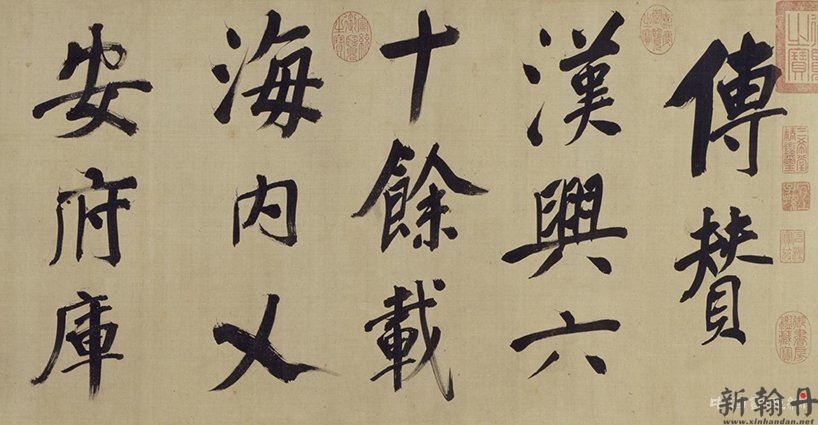 傳贊
漢興六
十餘載
海内乂
安府庫
新翰丹
www.xinhandan.net